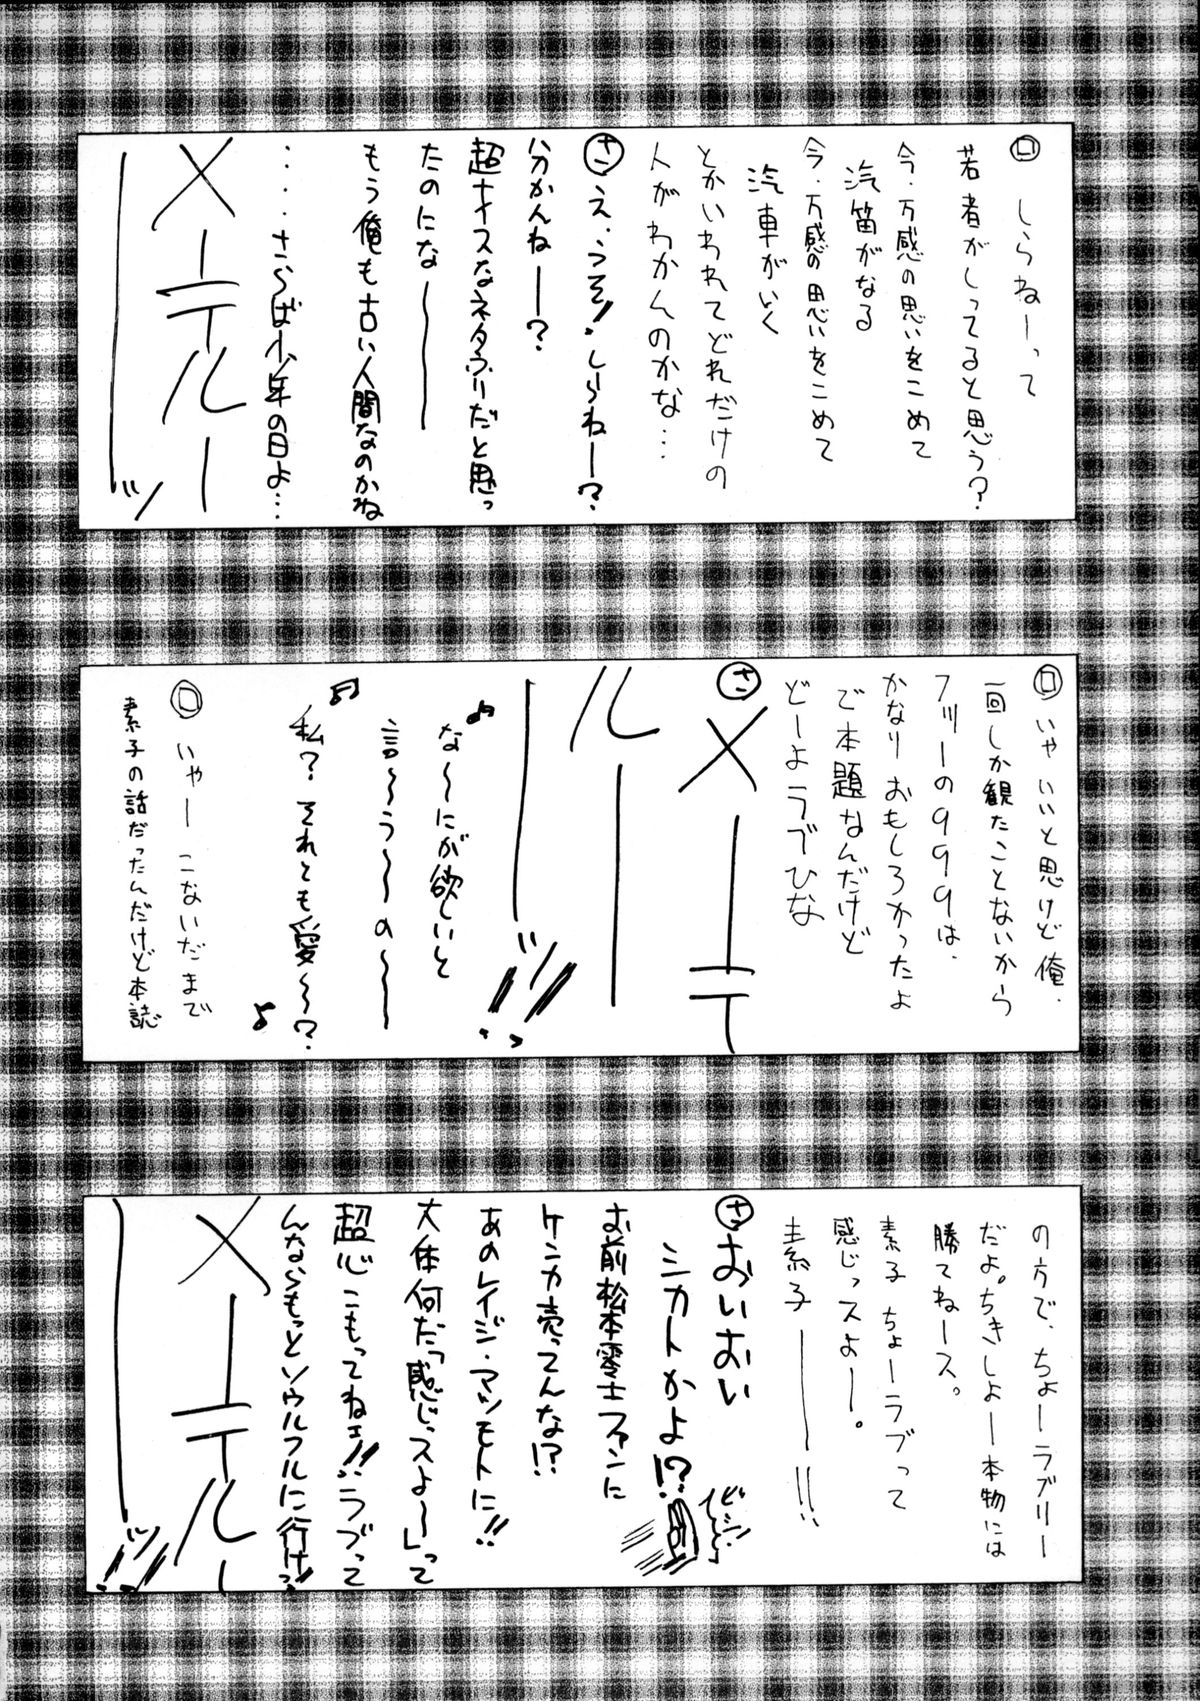 ロ しらねーって
若者がしってると思う?
今、万感の思いをこめて
汽笛がなる
今、万感の思いをこめて
汽車がいく
とかいわれてどれだけの
人がわかんのかな…
さ え、うそ!しらねー?
分かんねー?
超ナイスなネタふりだと思っ
たのにな〜
もう俺も古い人間なのかね
・・・さらば少年の日よ…
メーテルーーッ
ロ いやいいと思けど俺、
一回しか観たことないから
フツーの999は、
かなりおもしろかったよ
で本題なんだけど
どーよラブひな
さ メーテ
ルーーッ!!
な〜にが欲しいと
言〜う〜の〜
私?それとも愛〜?
ロ いやー こないだまで
素子の話だったんだけど本誌
の方で、ちょーラブリー
だよ。ちきしょー本物には
勝てねース。
素子ちょーラブって
感じっスよー。
素子ーーー!!
さ おいおい
シカトかよ!?
お前松本零士ファンに
ケンカ売ってんな!?
あのレイジ・マツモトに!!
大体何だ「感じっスよ〜」って
超心こもってねェ!!ラブって
んならもっとソウルフルに行けっ!
メーテルーーッ!!